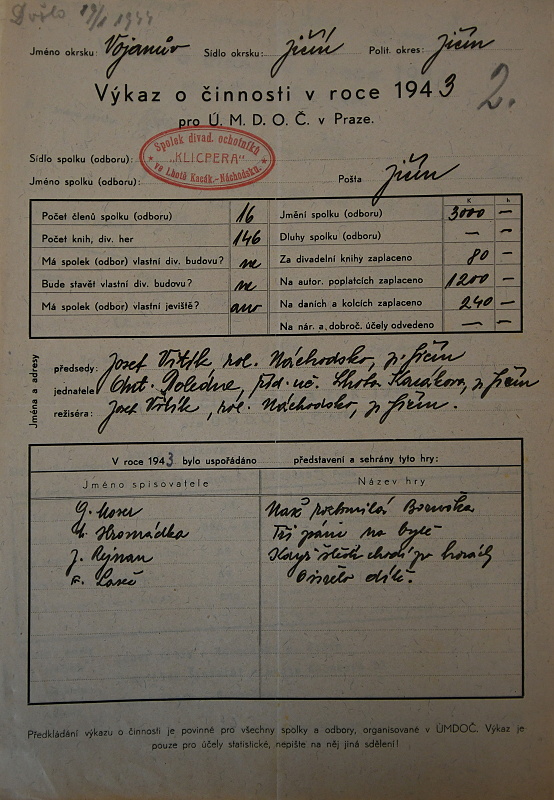 Došlo 19/1 1944
Jméno okrsku: Vojanův Sídlo okrsku: Jičín Polit. okres: Jičín
Výkaz o činnosti v roce 1943 2.
pro Ú. M. D. O. Č. v Praze.
Spolek divad. ochotníků
Sídlo spolku (odboru): „KLICPERA"
ve Lhotě Kacák.-Náchodsku.
Jméno spolku (odboru): Pošta Jičín
K h
Počet členů spolku (odboru) 16 Jmění spolku (odboru) 3000 —
Počet knih, div. her 146 Dluhy spolku (odboru) — —
Má spolek (odbor) vlastní div. budovu? ne Za divadelní knihy zaplaceno 80 —
Bude stavět vlastní div. budovu? ne Na autor. poplatcích zaplaceno 1200 —
Má spolek (odbor) vlastní jeviště? ano Na daních a kolcích zaplaceno 240 —
Na nár. a dobroč. účely odvedeno — —
Jména a adresy
předsedy: Josef rol. Náchodsko, p. Jičín
jednatele Ant. Poledne, Lhota p. Jičín
režiséra: Josef rol. Náchodsko, p. Jičín.
V roce 1943 bylo uspořádáno představení a sehrány tyto hry:
Jméno spisovatele Název hry
G. Moser Náš roztomilý
Hromádka Tři páni na bytě
J. Rejman Když štěstí chodí po horách
F. dítě.
Předkládání výkazu o činnosti je povinné pro všechny spolky a odbory, organisované v ÚMDOČ. Výkaz je
pouze pro účely statistické, nepište na něj jiná sdělení!